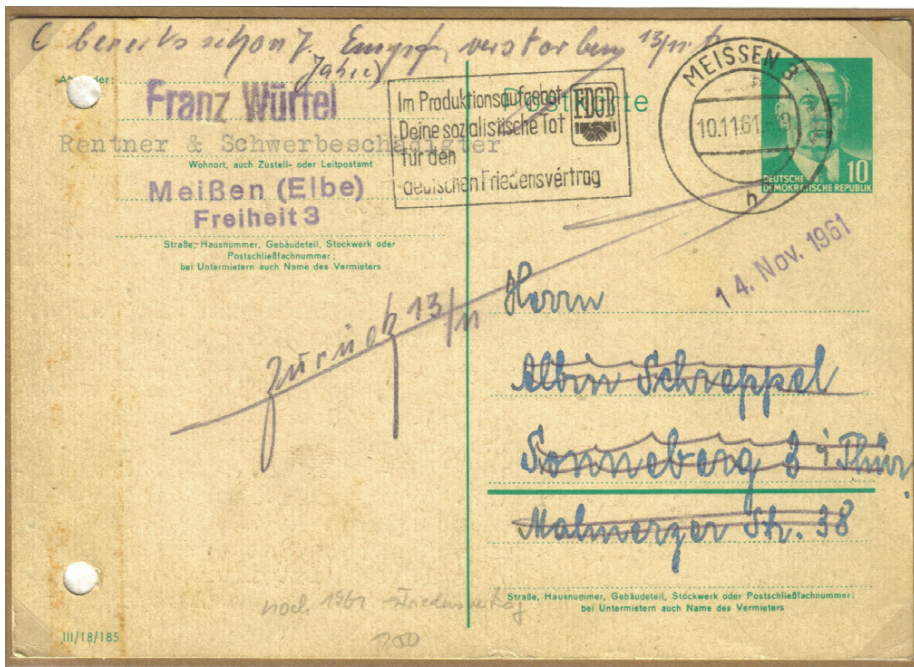 bereits schon 7. Empf. verstorben 13/11
Jahre)
Postkarte
Franz Würtel
Rentner & Schwerbeschädigter
Wohnort, auch Zustell- oder Leitpostamt
Meißen (Elbe)
Freiheit 3
Straße, Hausnummer, Gebäudeteil, Stockwerk oder
Postschließfachnummer;
bei Untermietern auch Name des Vermieters
Im Produktionsaufgebot
Deine sozialistische Tat
für den
deutschen Friedensvertrag
FDGB
MEISSEN 3
10.11.61
h
10
DEUTSCHE
DEMOKRATISCHE REPUBLIK
14. Nov. 1961
zurück 13/11
Herrn
Albin Schreppel
Sonneberg 3 i Thür.
Malmerzer Str. 38
Straße, Hausnummer, Gebäudeteil, Stockwerk oder Postschließfachnummer;
bei Untermietern auch Name des Vermieters
noch 1961 Friedensvertrag
III/18/185